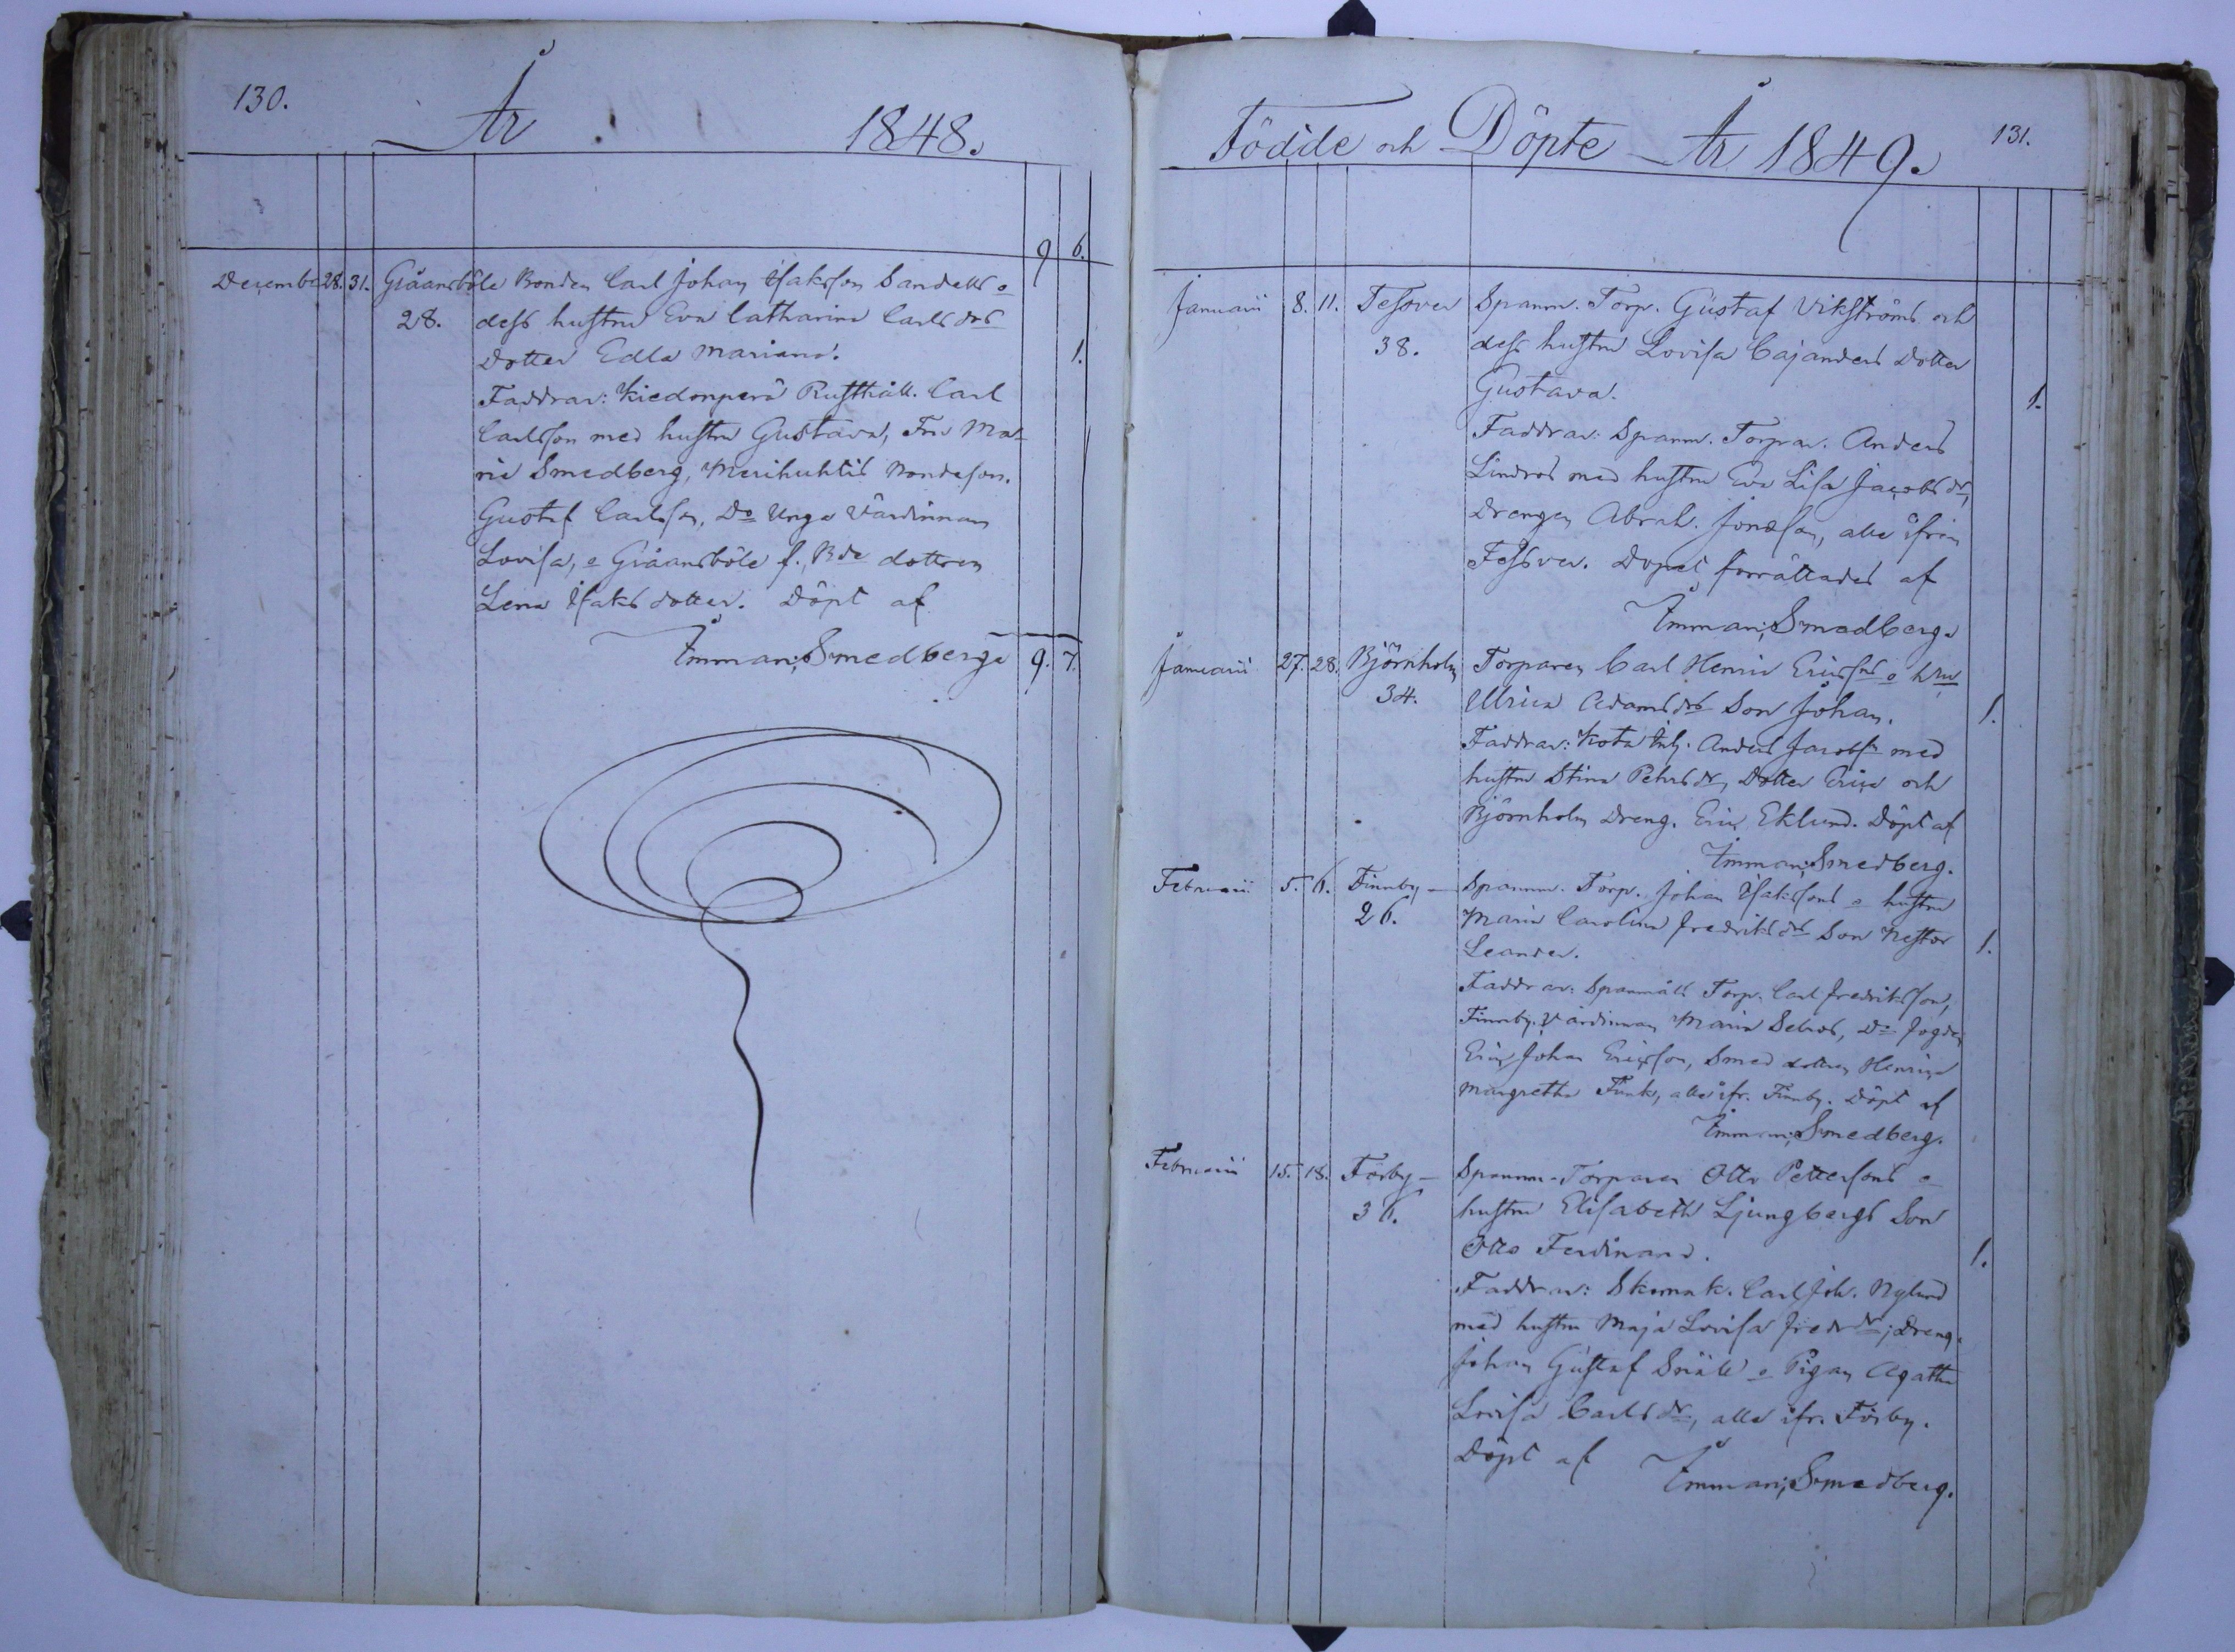 130.
År 1848.
9 6.
Decembr 28. 31. Gråansböle Bonden Carl Johan Isaksson Sandells o
28. dess hustru Eva Catharina Carls drs
Dotter Edla Mariana. 1.
Faddrar: Kiedonperä Rusthåll. Carl
Carlsson med hustru Gustava, Fru Ma-
rie Smedberg, Merihuhtis Bondeson.
Gustaf Carlsson, Do Unga Värdinnan
Lovisa, o Gråansböle f. Bde dottren
Lena Isaks dotter. Döpt af
Imman; Smedberg. 9. 7.
Födde och Döpte År 1849. 131.
Januarii 8. 11. Tessver Spanm. Torp. Gustaf Vikströms och
38. dess hustru Lovisa Cajanders Dotter
Gustava. 1.
Faddrar: Spanm. Torpar. Anders
Lindros med hustru Eva Lisa Jacobs dr,
Drengen Abrah. Jonasson, alla ifrån
Tessver. Dopet förrättades af
Imman; Smedberg.
Januarii 27. 28. Björnholm Torparen Carl Henric Ericssns o hru
34. Ulrica Adams drs Son Johan. 1.
Faddrar: Kota Inh. Anders Jacobsn med
hustru Stina Pehrs dr, Dotter Erica och
Björnholm Dreng. Eric Eklund. Döpt af
Imman; Smedberg.
Februarii 5. 6. Finnby Spanm. Torp. Johan Isakssons o hustru
26. Maria Carolina Fredriks drs Son Nestor 1.
Leander.
Faddrar: Spanmåls Torp. Carl Fredriksson,
Finnby. Värdinnan Maria Selros, Do Fogden
Eric Johan Ericsson, Smed dottren Henrica
Margretha Funk, alla ifr. Finnby. Döpt af
Imman; Smedberg.
Februarii 15. 18. Förby Spanm. Torparen Otto Pettersons o
36. hustru Elisabeth Ljungbergs Son
Otto Ferdinand. 1.
Faddrar: Skomak. Carl Joh. Nylund
med hustru Maja Lovisa Fredr dr; Dreng.
Johan Gustaf Snäll o Pigan Agatha
Lovisa Carls dr, alla ifr. Förby.
Döpt af Imman; Smedberg.